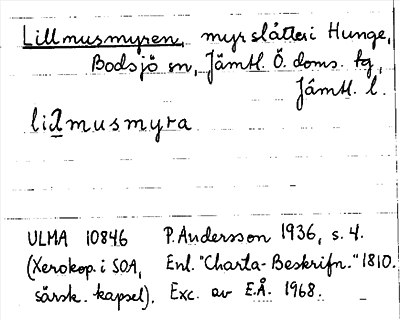 Lillmusmyren, myrslåtter i Hunge,
Bodsjö sn, Jämtl. Ö. doms. tg,
Jämtl. l.
lilmusmyra
ULMA 10846 P. Andersson 1936, s. 4.
(Xerokop. i SOA, Enl. "Charta-Beskrifn." 1810.
särsk. kapsel). Exc. av E.Å. 1968.